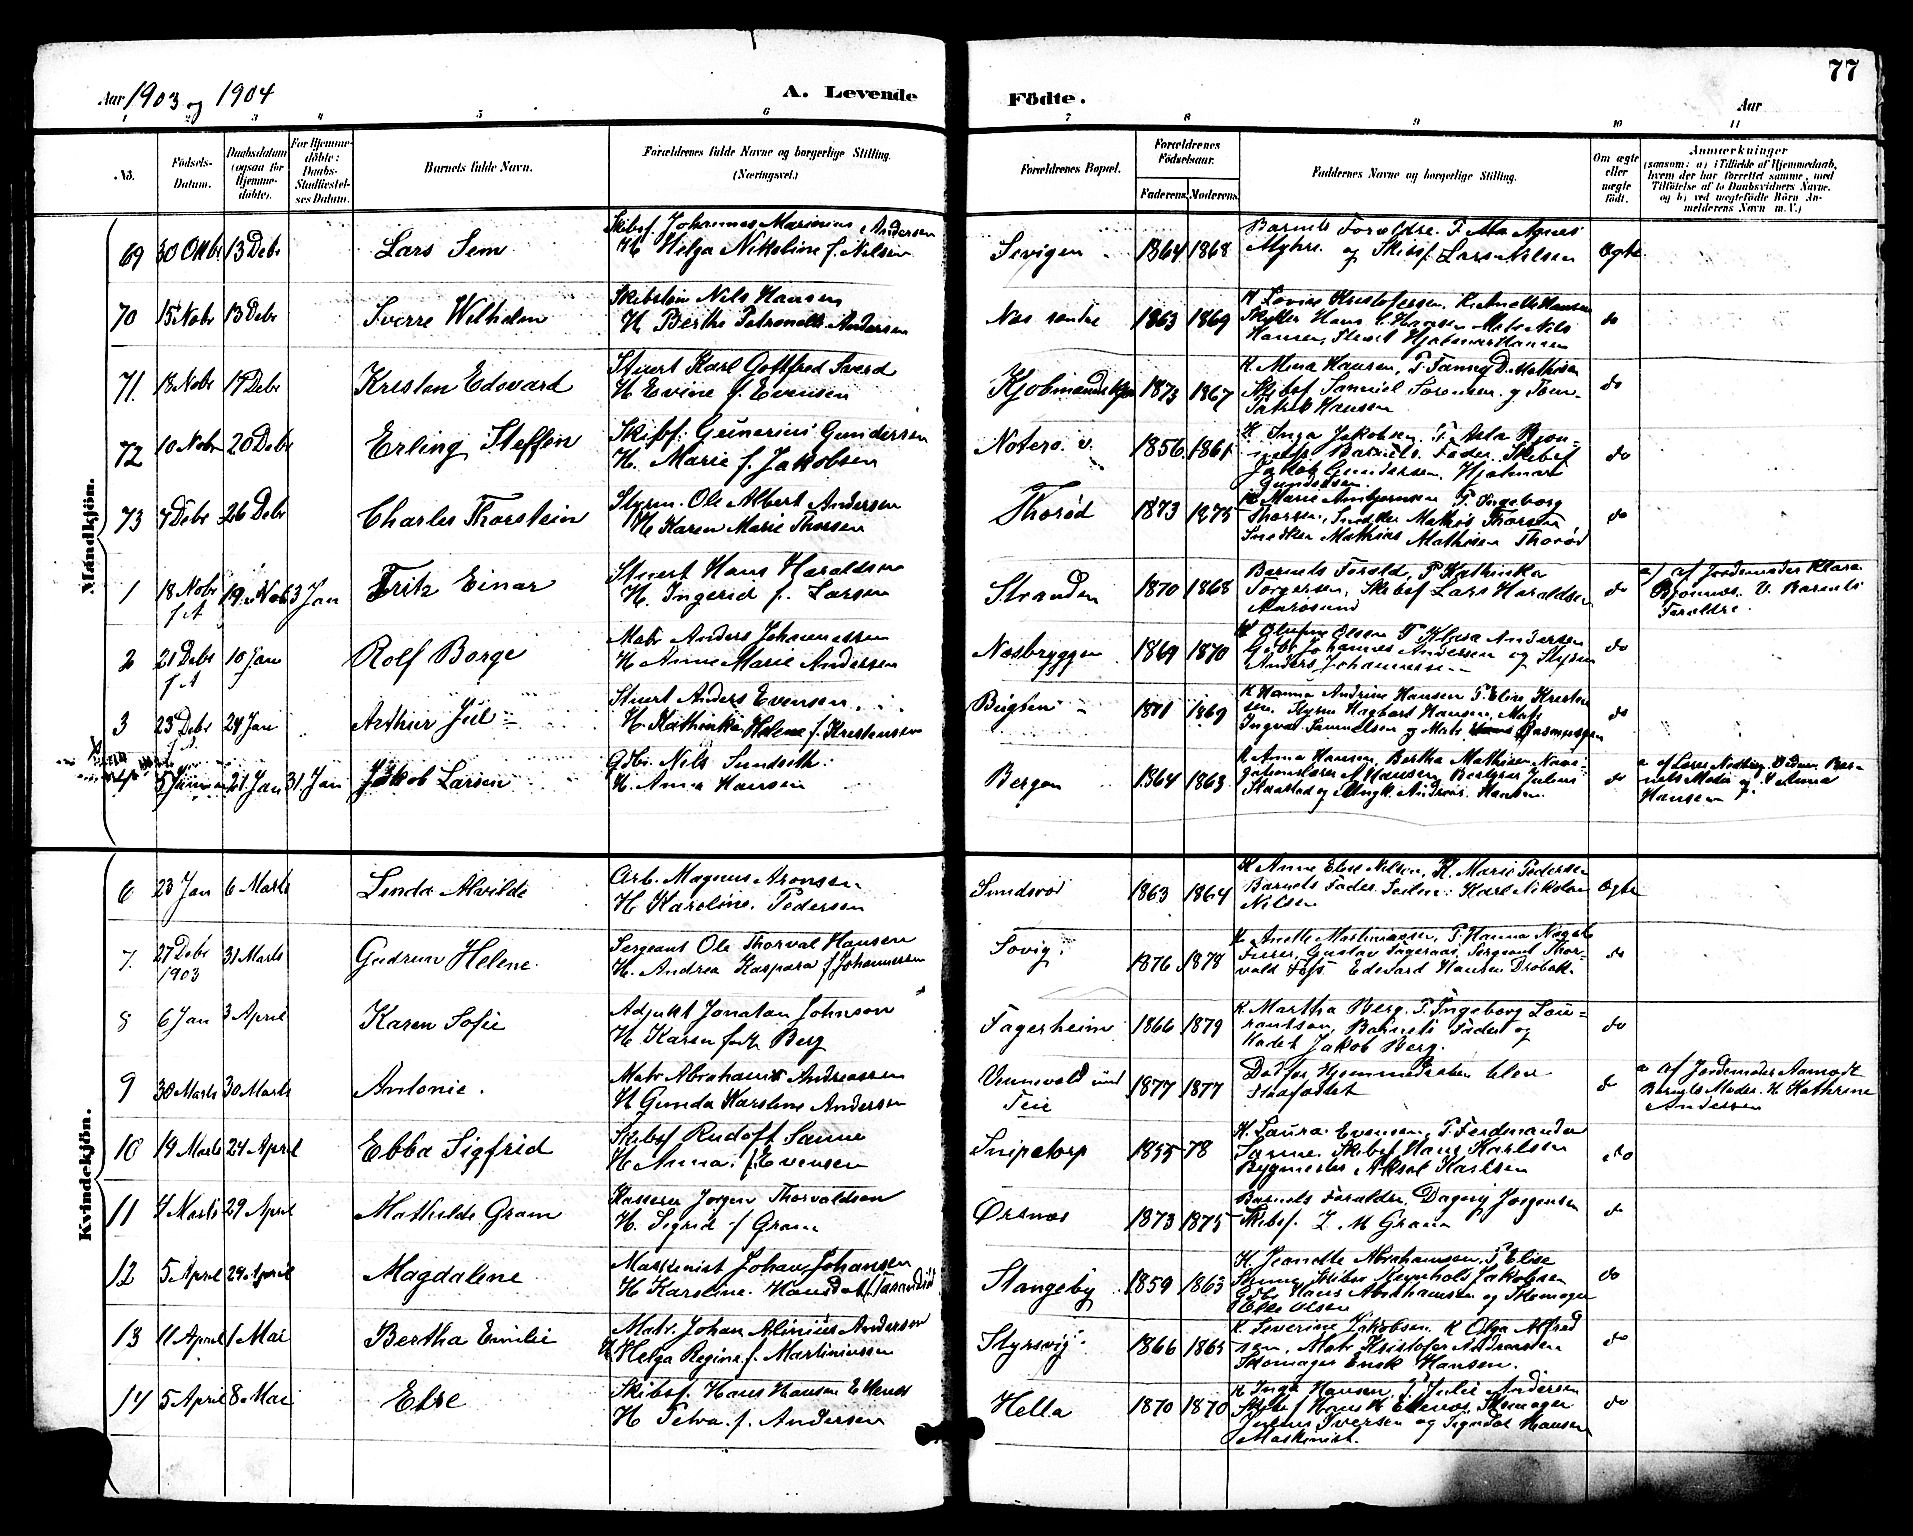 77
Aar 1903 og 1904
A. Levende
Födte.
Aar
1 2 3 4 5 6 7 8 9 10 11
No.
Födsels-Datum.
Daabsdatum (ogsaa for Hjemmedöbte).
For Hjemmedöbte: Daabs-Stadfæstelses Datum.
Barnets fulde Navn.
Forældrenes fulde Navne og borgerlige Stilling. (Næringsvei.)
Forældrenes Bopæl.
Forældrenes Födselsaar.
Faderens. Moderens.
Faddernes Navne og borgerlige Stilling.
Om ægte eller uægte födt.
Anmærkninger
(saasom: a) i Tilfælde af Hjemmedaab, hvem der har forrettet samme, med Tilföielse af to Daabsvidners Navne, og b) ved uægtefödte Börn Anmelderens Navn m. V.)
Mandkjön.
69 30 Oktbr 13 Debr Lars Sem
Skibsf. Johannes Marinius Andersen
H Helga Nikoline f. Nilsen
Sevigen 1864 1868
Barnets Foroldre. P. Ma Agnes
Myhre og Skibsf. Lars Nilsen
Ogte
70 15 Nobr 13 Debr Sverre Wilhelm
Skibstøm Nils Hansen
H Berthe Petronelle Andersen
Nes søndre 1863 1869
K Lovise Kristofersen. K. Anette Hansen
Skipper Hans C. Hansen Matr Nils
Hansen, Stuert Hjalmar Hansen
do
71 18 Nobr 17 Debr Kristen Edvard
Stuert Karl Gottfred Sverd
H Evine f. Evensen
Kjobmandskjær 1873 1867
K Mina Hansen, P. Fanny D. Mathisen
Skibsf Samuel Sorensen og Tom-
Patrik Hansen
do
72 10 Nobr 20 Debr Erling Steffen
Skibsf. Gunerius Gundersen
H. Marie f. Jakobsen
Notero v. 1856 1861
K Inga Jakobsen. P. Asta Bjon-
Barnets Fader. Skibsf
Jakob Gundersen. Hjalmar
Gundersen.
do
73 7 Debr 26 Debr Charles Thorstein
Styrm. Ole Albert Andersen
H. Karen Marie Thorsen
Thorød 1873 1875
K Marie P. Ingeborg
Thorsen, Snedker Mathis Thorsen,
Snedker Mathias Mathisen Thorød
do
1 18 Nobr f.A 19. Nob 3 Jan Fritz Einar
Stuert Hans Haraldsen
H. Ingerid f. Larsen
Stranden 1870 1868
Barnets Forold, P Kathinka
Torgersen, Skibsf Lars Haraldsen
Narosund
do
a) af Jordemoder Klara
Bjonnes. V. Barnets
Foroldre.
2 21 Debr f.A 10 Jan Rolf Borge
Matr Anders Johannessen
H Anne Marie Andersen
Nesbryggen 1869 1870
K Olufine Olsen P Klara Andersen
Gdbr Johannes Andersen og Styrm
Anders Johannessen
do
3 23 Debr 24 Jan Arthur Jul
Stuert Anders Evensen
H. Kathinka Helene f. Kristensen
Bugten 1871 1869
K Hanna Andrine Hansen P. Eline Kristen
sen. Styrm Hagbart Hansen, Matr
Ingvar Samuelsen og Matr Rasmussen
do
5 Januar 21 Jan 31 Jan Jakob Larsen
Gdbr. Nils Sundseth
H. Anna Hansen
Bergan 1864 1863
K Anna Hansen, Bertha Mathisen Navi-
gationslærer N Hansen Bestyrer Julius
Skaastad og Ungk. Andreas. Hansen.
do
a af Lars V Dem Bar-
nets Moder og K Anna
Hansen
Kvindekjön.
6 23 Jan 6 Marts Linda Alvilde
Arb. Magnus Aronsen
H Karoline. Pedersen
Sundsrod 1863 1864
K Anne Elise Nilsen, K. Marie Pedersen
Barnets Fader. Seilm. Karl Nikolai
Nilsen
Ogte
7. 27 Debr 1903 31 Marts Gudrun Helene.
Sergeant Ole Thorval Hansen
H. Andrea Kaspara f Johannessen
Sovig. 1876 1878
K. Anette Martiniussen, P. Hanna
Gustav Fageraas, Sergeant Thor-
vald Foss Edevard Hansen Drobak.
do
8 6 Jan 3 April Karen Sofie
Adjukt Jonatan Johnson
H Karen født Berg
Fagerheim 1866 1879
K Martha Berg. P. Ingeborg Lau-
rantson, Barnets Fader og
Kadet Jakob Berg.
do
9 30 Marts 30 Marts Antonie.
Matr Abraham Andreassen
H Gunda Karoline Andersen
Vennevold ved
Teie 1877 1877
Dod for Hjemmedaaben blev
stadfæstet
do
a af Jordemoder Aamodt
Barnets Moder. K Kathrine
Andersen
10 19 Marts 24 April Ebba Sigfrid
Skibsf Rudolf Sanne
H Anna. f Evensen
Snipetorp 1855 78
K. Laura Evensen, P. Ferdinanda
Sanne. Skibsf Hans Karlsen
Bygmester Aksel Karlsen
do
11 4 Marts 29 April Mathilde Gram
Kasserer Jørgen Thorvaldson
H. Sigrid f Gram
Ørsnes 1873 1875
Barnets Foroldre, Dagny Jorgensen
Skibsf. L M Gram
do
12 5 April 24 April Magdalene
Maskinist Johan Johansen
H Karoline. Hansdat.
Stangeby 1859 1863
K. Jeanette Abrahamsen. P Elise
Skibsr Reynholt Jakobsen
Gdbr Hans Abrahamsen og Skomager
Olsen
do
13 11 April 1 Mai Bertha Emilie
Matr. Johan Alinius Andersen
H Helga Regine f. Martiniussen
Styrsvig 1866 1865
K. Severine Jakobsen. K Olga Alfred
sen, Matr Kristofer Andreassen
Skomager Enok Hansen.
do
14 5 April 8 Mai Else
Skibsf. Hans Hansen Ekenes
H Petra. f. Andersen
Hella 1870 1870
K Inga Hansen. P. Julie Andersen
Skibsf Hans H Ekenes, Skomager
Julius Iversen og Sigvdal Hansen
Maskinist.
do